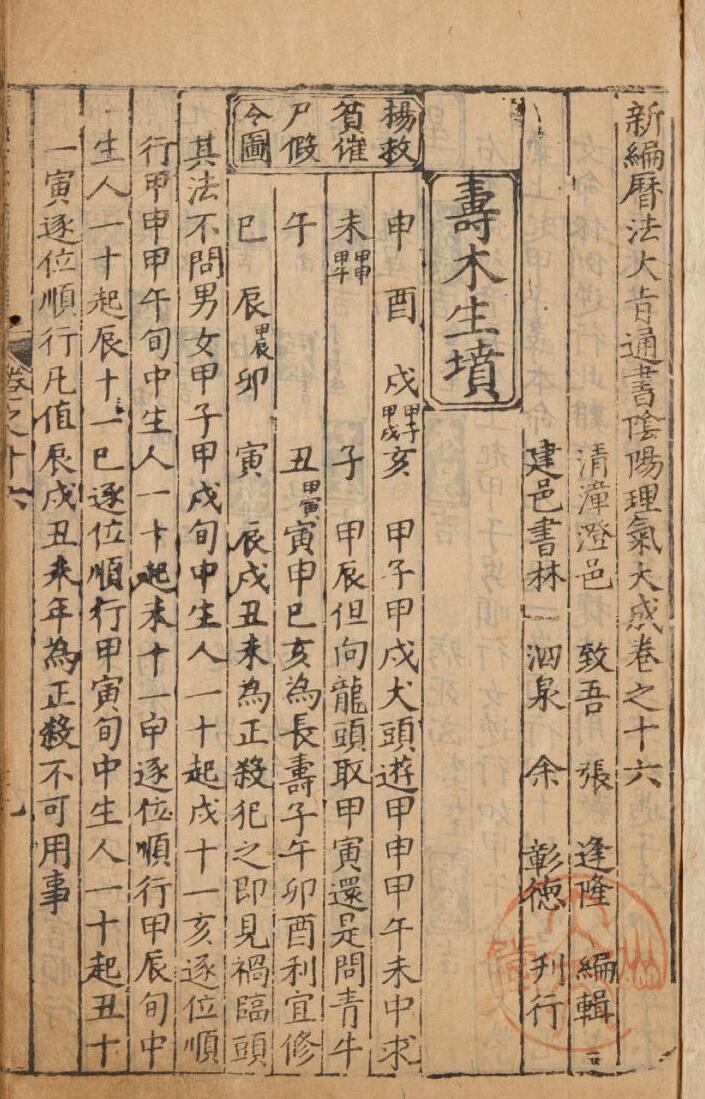 新編曆法大旨通書陰陽理氣大成卷之十六
清漳澄邑 致吾 張 逢隆 編輯
建邑書林 泗泉 余 彰德 刊行
壽木生墳
楊救
貧催
尸假
令圖
申 酉 戌甲子甲戌亥 甲子甲戌犬頭遊甲申甲午未中求
未甲申甲午 子 甲辰但向龍頭取甲寅還是問青牛
午 丑甲寅寅申巳亥為長壽子午卯酉利宜修
巳 辰甲辰卯 寅 辰戌丑未為正殺犯之即見禍臨頭
其法不問男女甲子甲戌旬中生人一十起戌十一亥逐位順
行甲申甲午旬中生人一十起未十一申逐位順行甲辰旬中
生人一十起辰十一巳逐位順行甲寅旬中生人一十起丑十
一寅逐位順行凡值辰戌丑未年為正殺不可用事
卷之十六